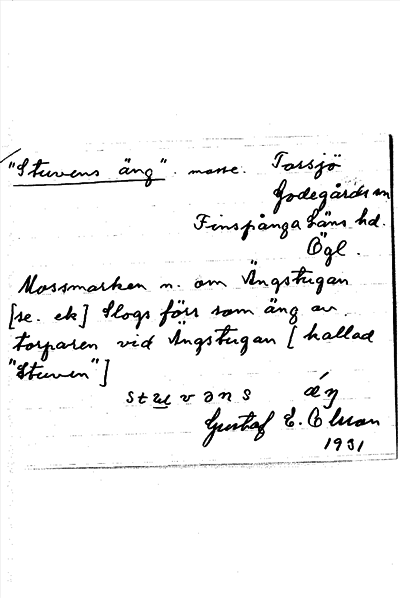 "Stuvens äng". mosse. Torsjö
Godegårds sn
Finspånga Läns hd.
Ögl.
Mossmarken n. om Ängstugan
[se. ek] Slogs förr som äng av
torparen vid Ängstugan [kallad
"Stuven"]
stu̲vəns ǽŋ
Gustaf E. Olsson
1931